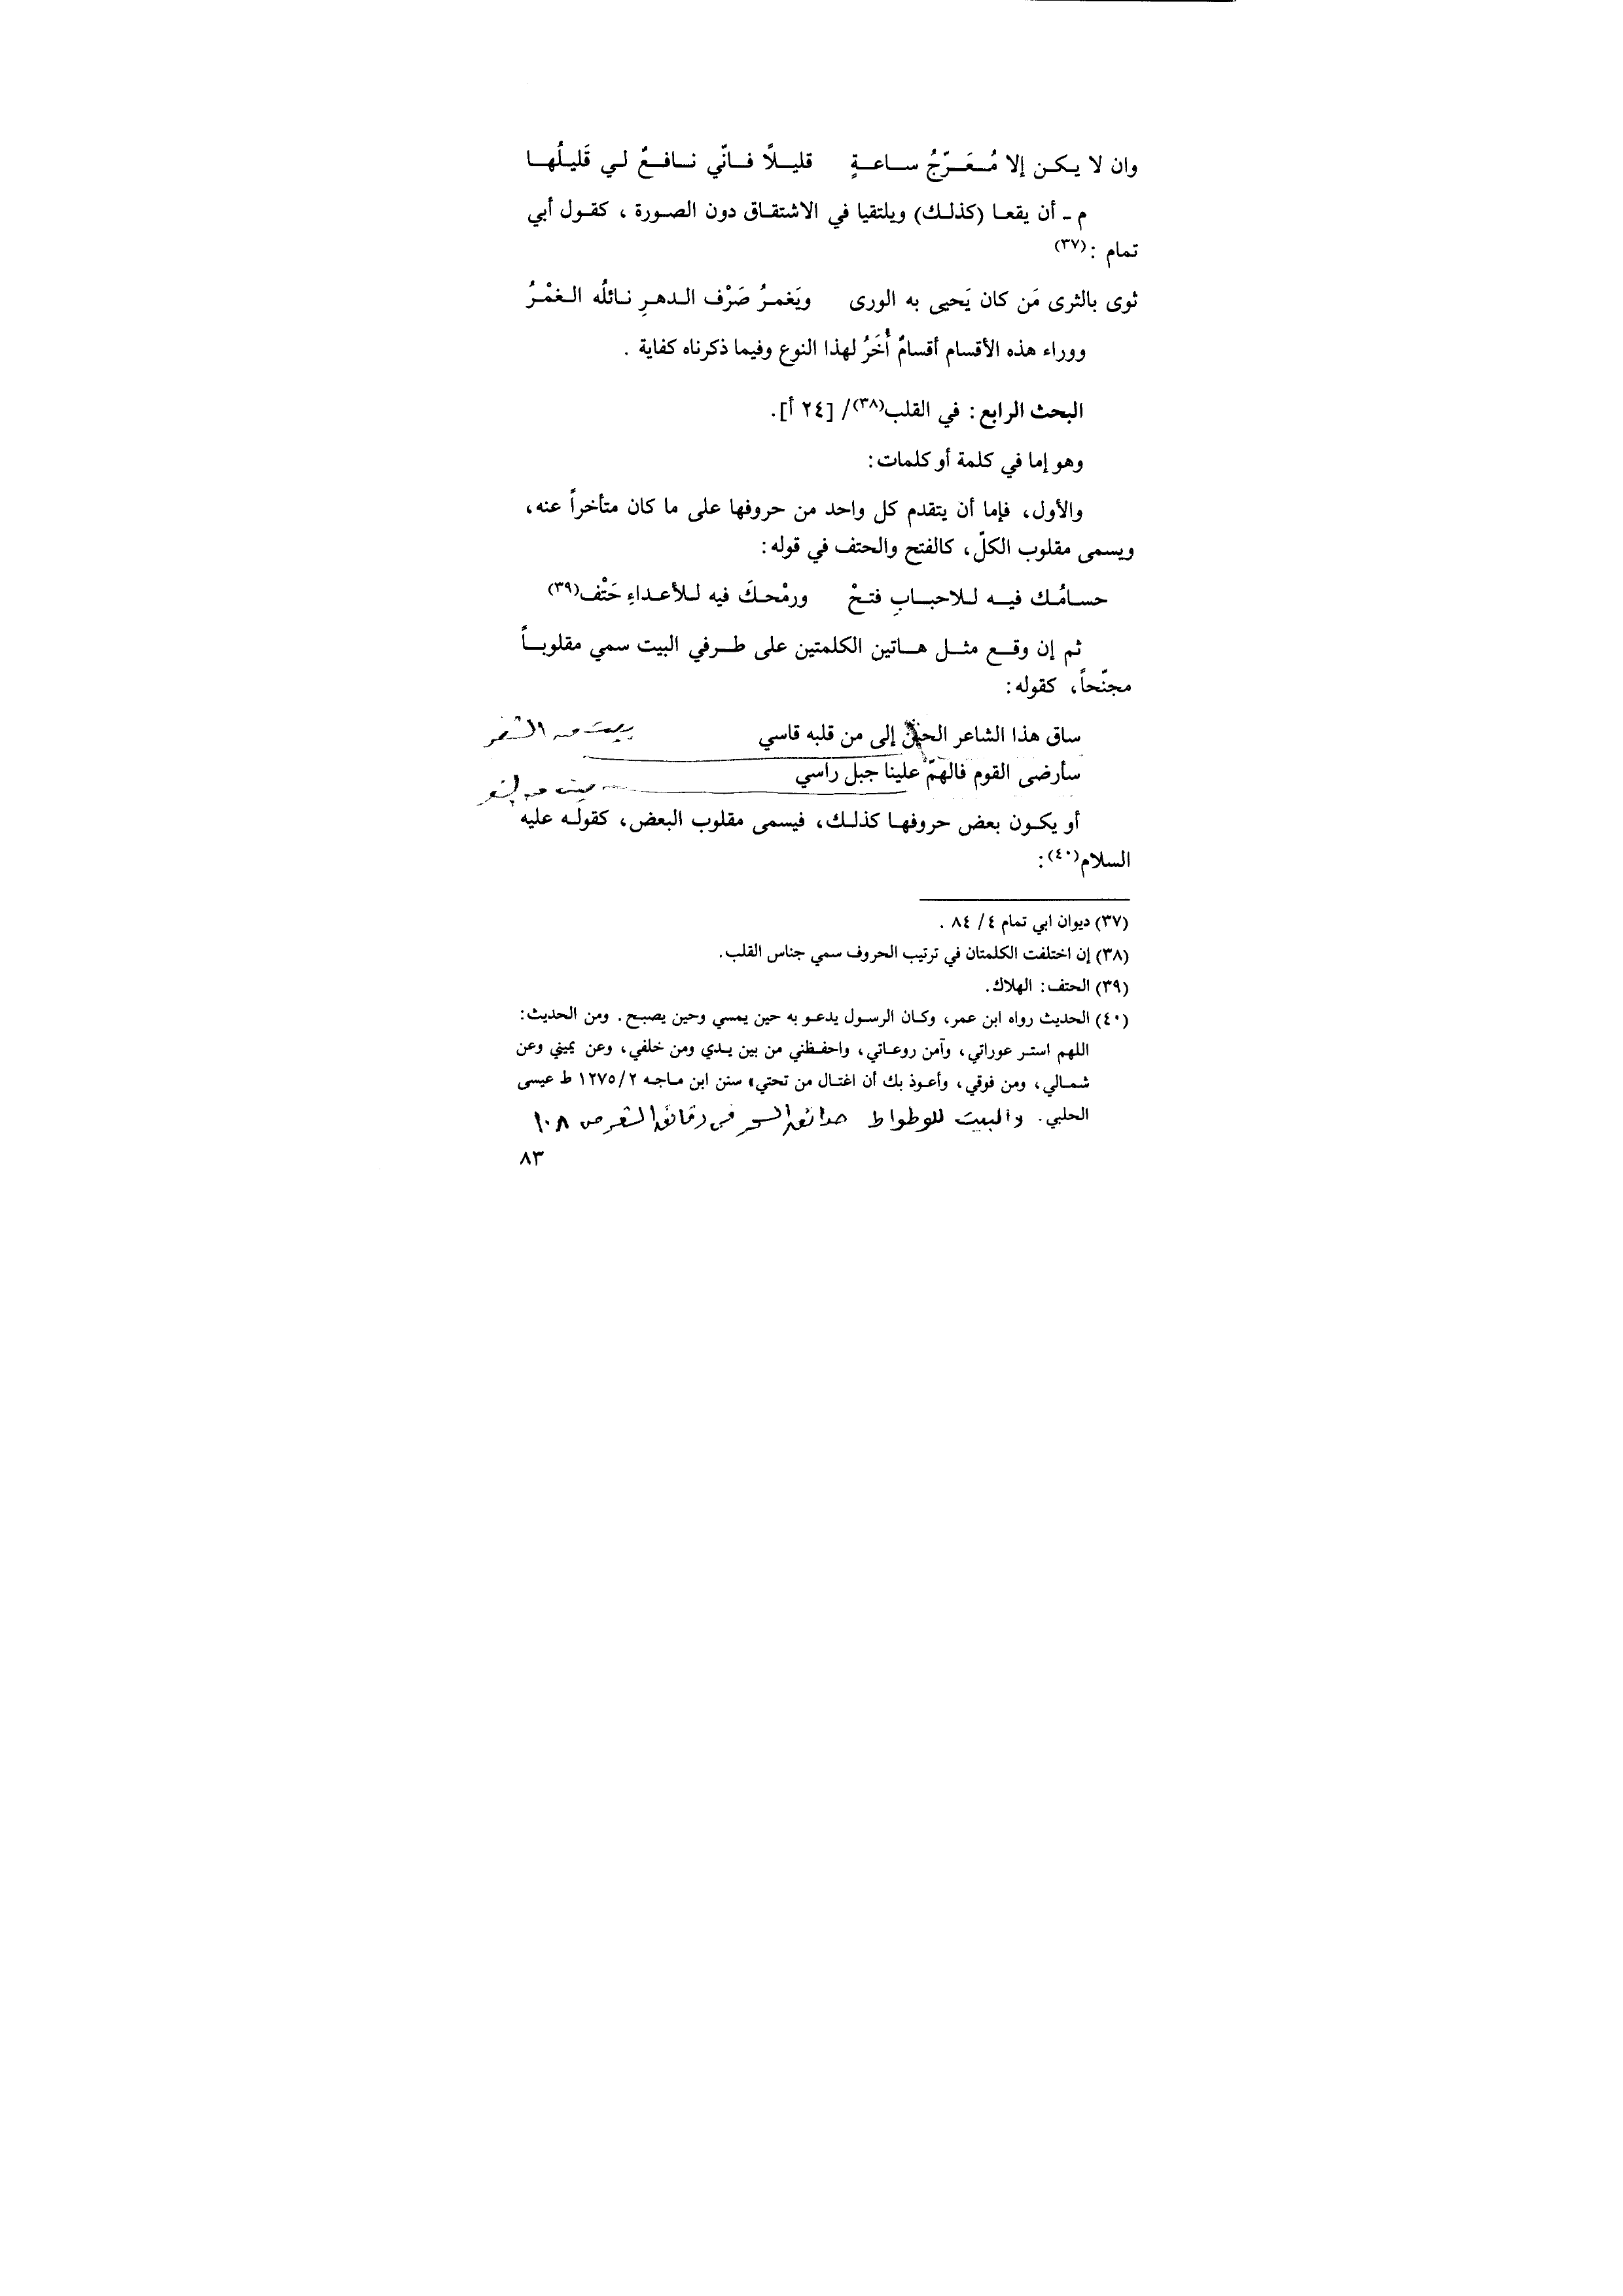 وان لا يكن إلا مُعَرّجُ ساعةٍ قليلًا فانّي نافعٌ لي قَليلُها
م - أن يقعا (كذلك) ويلتقيا في الاشتقاق دون الصورة ، كقول أبي
تمام : (٣٧)
ثوى بالثرى مَن كان يَحيى به الورى ويَغمرُ صَرْف الدهرِ نائلُه الغمْرُ
ووراء هذه الأقسام أقسامٌ أُخَرُ لهذا النوع وفيما ذكرناه كفاية .
البحث الرابع : في القلب(٣٨)/ [٢٤ أ].
وهو إما في كلمة أو كلمات:
والأول، فإما أن يتقدم كل واحد من حروفها على ما كان متأخراً عنه،
ويسمى مقلوب الكلّ، كالفتح والحتف في قوله:
حسامُك فيه للاحبابِ فتحْ ورمْحكَ فيه للأعداءِ حَتْف(٣٩)
ثم إن وقع مثل هاتين الكلمتين على طرفي البيت سمي مقلوباً
مجنّحاً، كقوله:
ساق هذا الشاعر إلى من قلبه قاسي بيت من الشعر
سأرضى القوم فالهمّ علينا جبل راسي بيت من الشعر
أو يكون بعض حروفها كذلك، فيسمى مقلوب البعض، كقوله عليه
السلام(٤٠):
(٣٧) ديوان ابي تمام ٤/ ٨٤ .
(٣٨) إن اختلفت الكلمتان في ترتيب الحروف سمي جناس القلب.
(٣٩) الحتف: الهلاك.
(٤٠) الحديث رواه ابن عمر، وكان الرسول يدعو به حين يمسي وحين يصبح. ومن الحديث:
اللهم استر عوراتي، وآمن روعاتي، واحفظني من بين يدي ومن خلفي، وعن يميني وعن
شمالي، ومن فوقي، وأعوذ بك أن اغتال من تحتي» سنن ابن ماجه ٢/ ١٢٧٥ ط عيسى
الحلبي. والبيت للوطواط حدائق السحر في دقائق الشعر ص ١٠٨
٨٣